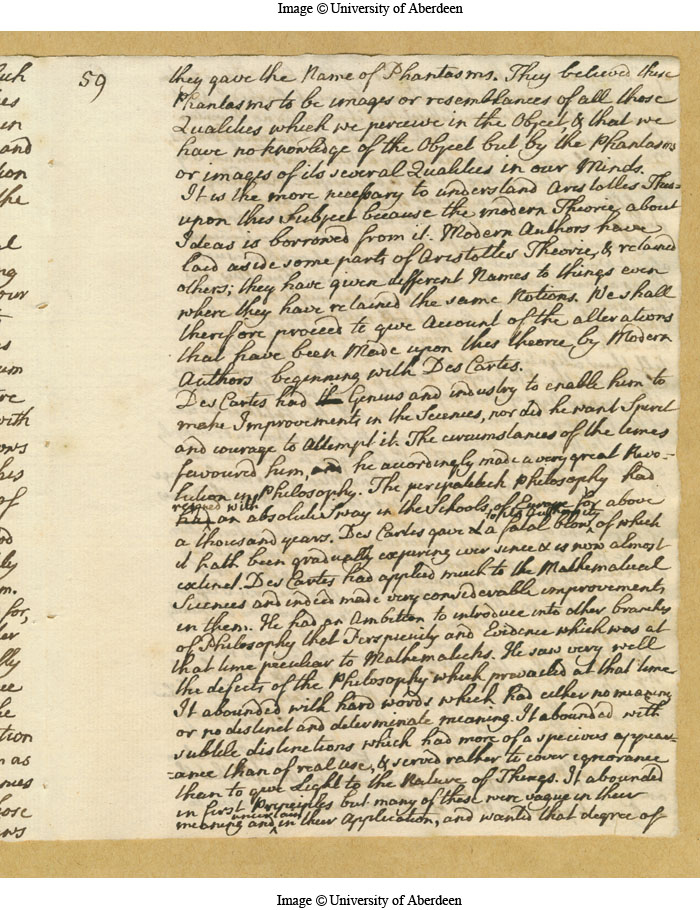 Image © University of Aberdeen
59
they gave the Name of Phantasms. They believed these
Phantasms to be images or resemblances of all those
Qualities which we perceive in the Object, & that we
have no knowledge of the Object but by the Phantasms
or images of its several Qualities in our Minds.
It is the more necessary to understand Aristotles
upon this Subject because the modern Theorie about
Ideas is borrowed from it. Modern Authors have
laid aside some parts of Aristotles Theorie, & retained
others; they have given different Names to things even
where they have retained the same Notions. We shall
therefore proceed to give Account of the alterations
that have been Made upon this theorie by Modern
Authors beginning with Des Cartes.
Des Cartes had Genius and industry to enable him to
make Improvements in the Sciences, nor did he want Spirit
and courage to Attempt it. The circumstances of the times
favoured him, and he accordingly made a very great Revo-
lution in Philosophy. The peripatetick Philosophy had
reigned with
an absolute Sway in the Schools of Europe for above
to its Authority
a thousand years. Des Cartes gave a fatal blow, of which
it hath been gradually expiring ever since & is now almost
extinct. Des Cartes had applied much to the Mathematical
Sciences and indeed made very considerable improvements
in them. He had an Ambition to introduce into other branches
of Philosophy that Perspicuity and Evidence which was at
that time peculiar to Mathematicks. He saw very well
the defects of the Philosophy which prevailed at that time
It abounded with hard words which had either no meaning
or no distinct and determinate meaning. It abounded with
subtile distinctions which had more of a specious appear-
-ance than of real use, & served rather to cover ignorance
than to give Light to the Nature of Things. It abounded
in first Principles but many of these were vague in their
uncertain
meaning and in their Application, and wanted that degree of
Image © University of Aberdeen